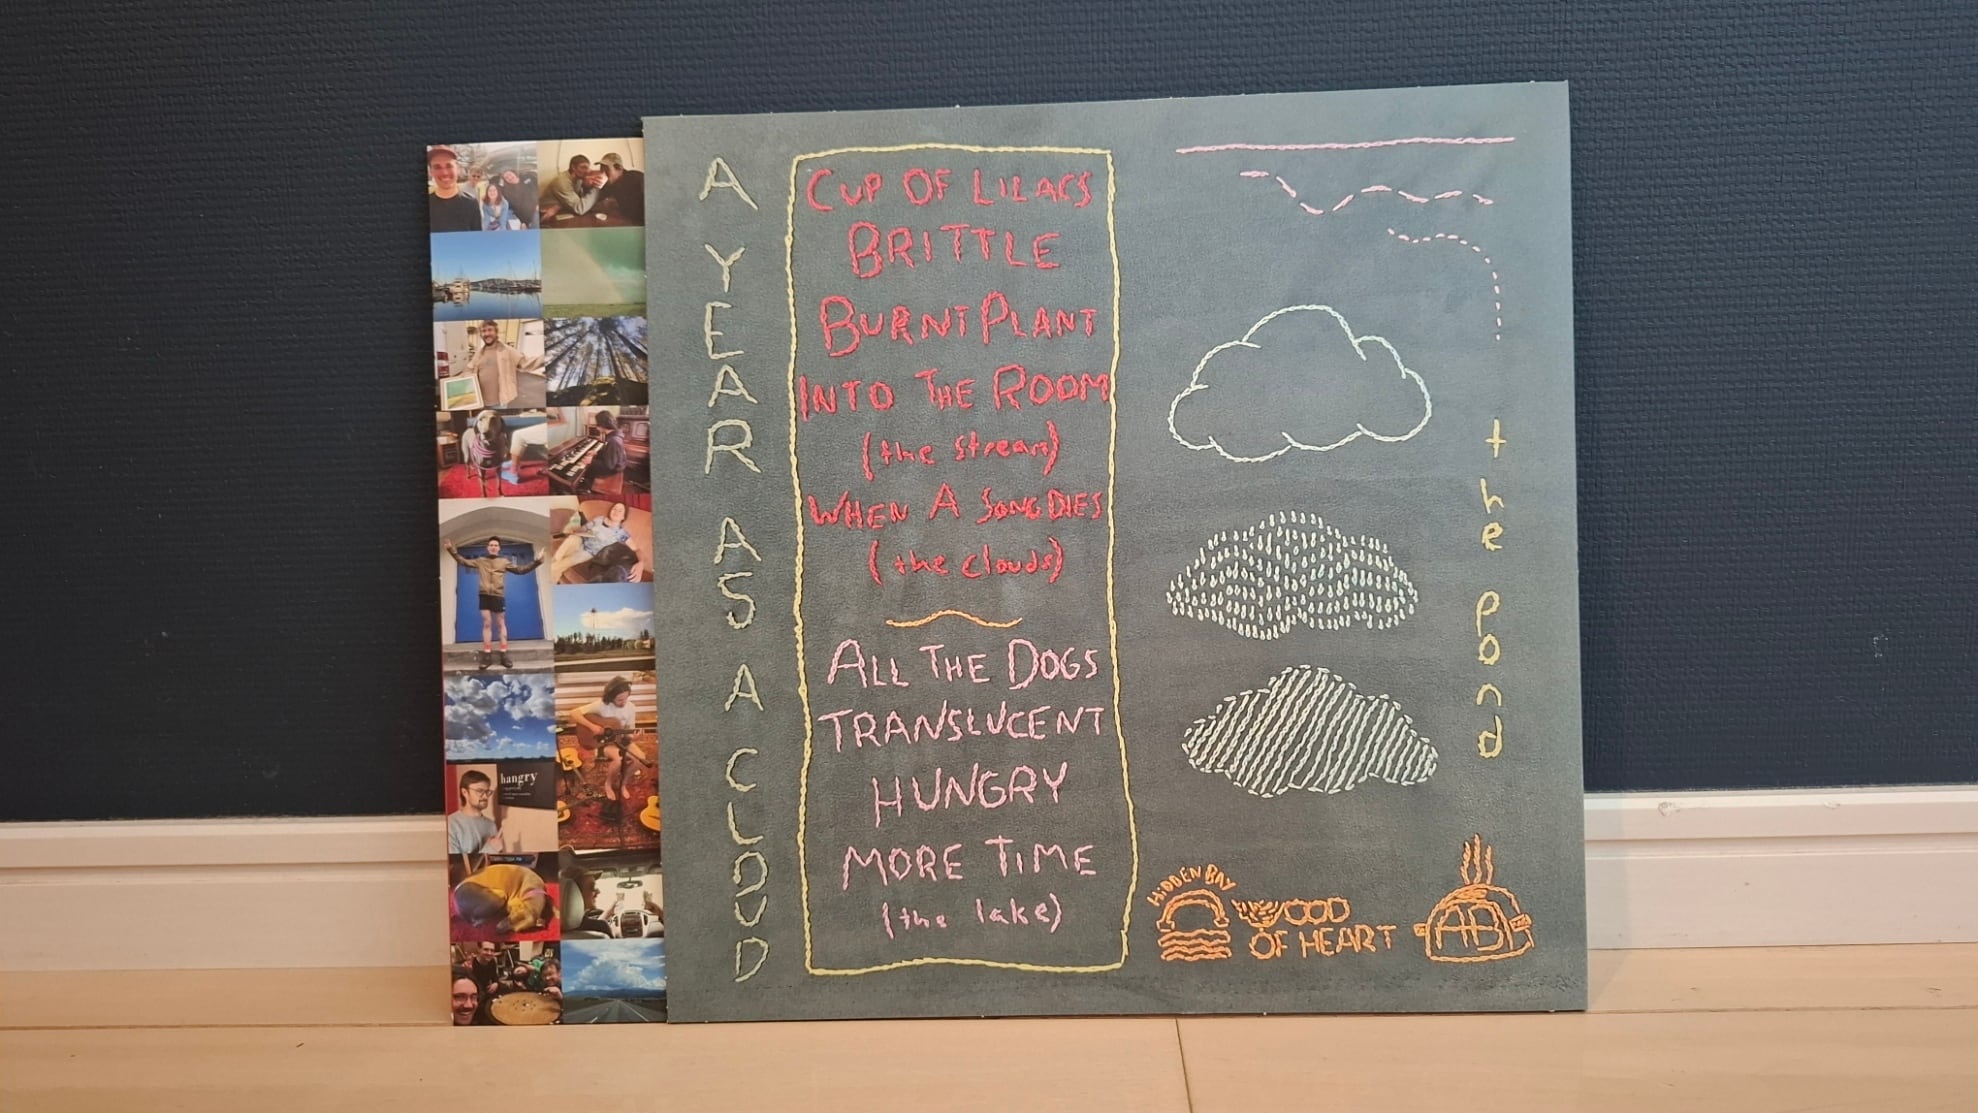 A YEAR AS A CLOUD
CUP OF LILACS
BRITTLE
BURNT PLANT
INTO THE ROOM
(the stream)
WHEN A SONG DIES
(the clouds)
ALL THE DOGS
TRANSLUCENT
HUNGRY
MORE TIME
(the lake)
the pond
HIDDEN BAY
WOOD
OF HEART
AB
hangry